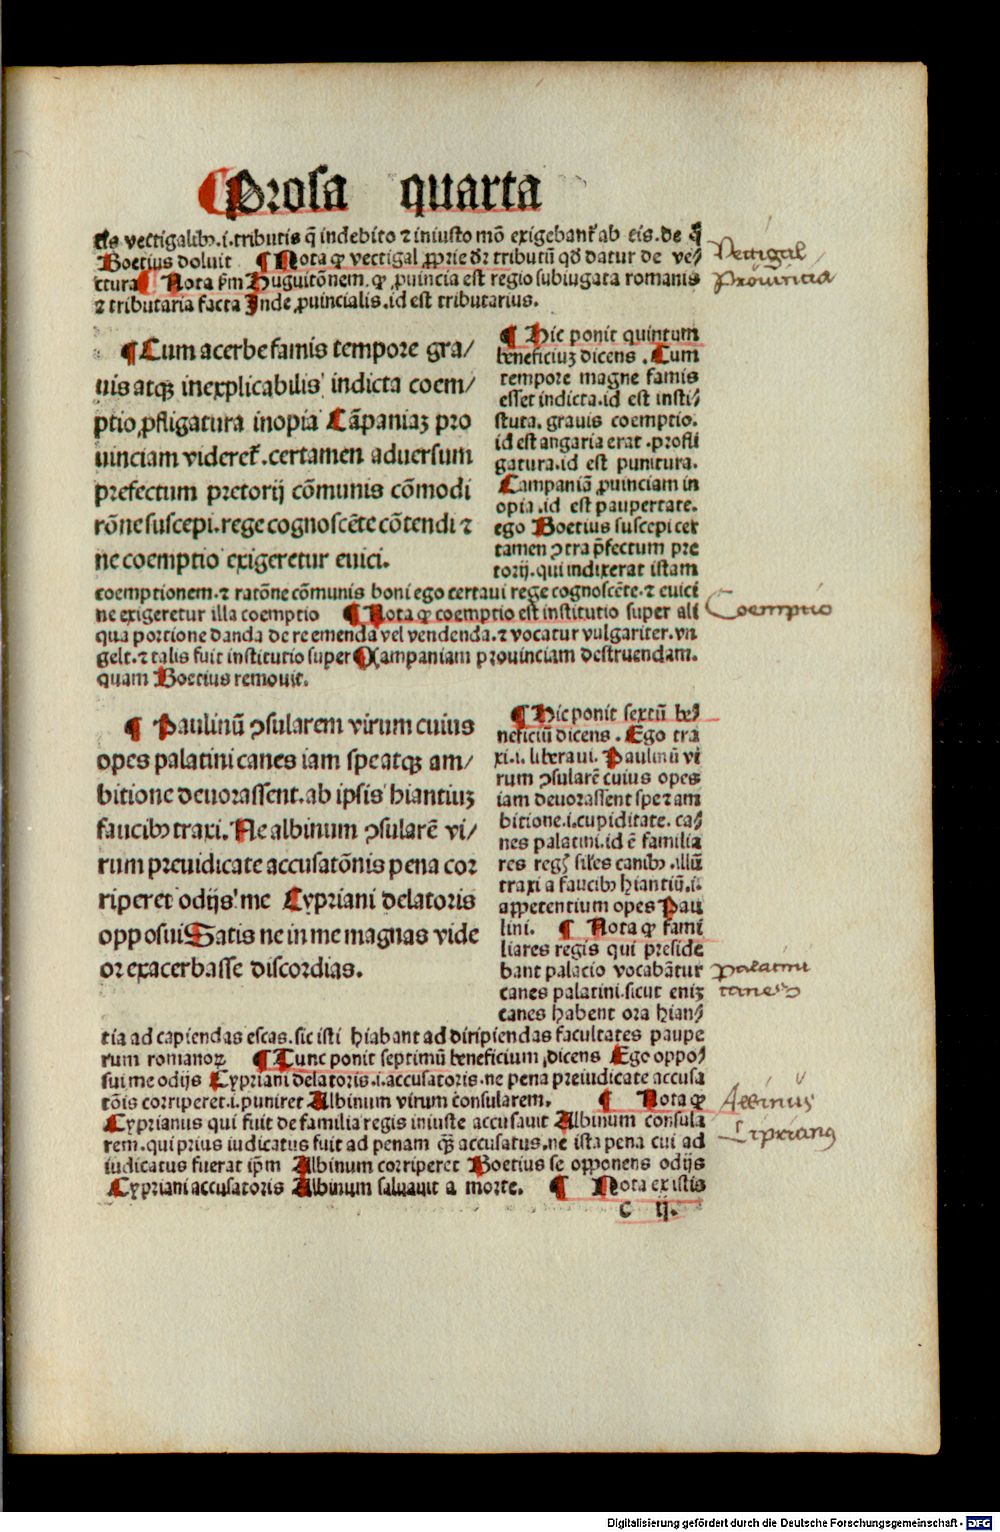 Prosa quarta
tis vectigalibꝰ.i.tributis q̄ indebito ⁊ iniusto mō exigebant᷑ ab eis.de q̄
Boetius doluit ¶ Nota ꝙ vectigal ꝓprie dr̄ tributū qd̄ datur de ve⸗
ctura ¶ Nota ẜm Huguitōnem. ꝙ ꝓuincia est regio subiugata romanis
⁊ tributaria facta Inde ꝓuincialis.id est tributarius.
Vectigal
Prouincia
¶ Cum acerbe famis tempore gra/
uis atqꝫ inexplicabilis indicta coem/
ptio ꝓfligatura inopia Cāpaniaꝫ pro
uinciam videret᷑.certamen aduersum
prefectum pretorij cōmunis cōmodi
rōne suscepi.rege cognoscēte cōtendi ⁊
ne coemptio exigeretur euici.
¶ Hic ponit quintum
beneficiuꝫ dicens . Cum
tempore magne famis
esset indicta.id est insti⸗
stuta. grauis coemptio.
id est angaria erat .profli
gatura.id est punitura.
Campaniā ꝓuinciam in
opia .id est paupertate.
ego Boetius suscepi cer
tamen ↄtra p̄fectum pre
torij. qui indixerat istam
coemptionem.⁊ ratōne cōmunis boni ego certaui rege cognoscēte.⁊ euici
ne exigeretur illa coemptio ¶ Nota ꝙ coemptio est institutio super ali
qua portione danda de re emenda vel vendenda.⁊ vocatur vulgariter.vn
gelt.⁊ talis fuit institutio super Campaniam prouinciam destruendam.
quam Boetius remouit.
Coemptio
¶ Paulinū ↄsularem virum cuius
opes palatini canes iam spe atqꝫ am/
bitione deuorassent.ab ipsis hiantiuꝫ
faucibꝰ traxi.Ne albinum ↄsularē vi/
rum preuidicate accusatōnis pena cor
riperet odijs me Cypriani delatoris
opposui Satis ne in me magnas vide
or exacerbasse discordias.
¶ Hic ponit sextū be⸗
neficiū dicens . Ego tra
xi.i. liberaui. Paulinū vi
rum ↄsularē cuius opes
iam deuorassent spe ⁊ am
bitione.i.cupiditate. ca⸗
nes palatini.id ē familia
res reg. siles canibꝰ .illū
traxi a faucibꝰ hiantiū.i.
appetentium opes Pau
lini. ¶ Nota ꝙ fami
liares regis qui preside
bant palacio vocabātur
canes palatini.sicut enim
canes habent ora hian⸗
palatini
canes
tia ad capiendas escas.sic isti hiabant ad diripiendas facultates paupe
rum romanoꝝ ¶ Tunc ponit septimū beneficium dicens Ego oppo⸗
sui me odijs Cypriani delatoris.i.accusatoris.ne pena preiudicate accusa
tōis corriperet.i.puniret Albinum virum consularem. ¶ Nota ꝙ
Cyprianus qui fuit de familia regis iniuste accusauit Albinum consula
rem.qui prius iudicatus fuit ad penam qꝫ accusatus.ne ista pena cui ad
iudicatus fuerat ip̄m Albinum corriperet Boetius se opponens odijs
Cypriani accusatoris Albinum saluauit a morte. ¶ Nota ex istis
Albinus
Ciprianus
c ij.
Digitalisierung gefördert durch die Deutsche Forschungsgemeinschaft - DFG